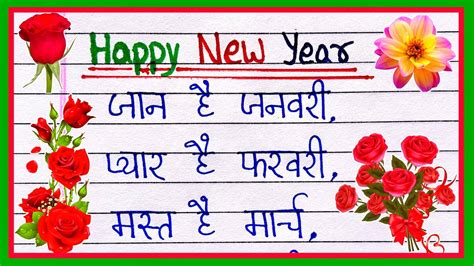 Happy New Year
जान है जनवरी,
प्यार है फरवरी,
मस्त है मार्च,